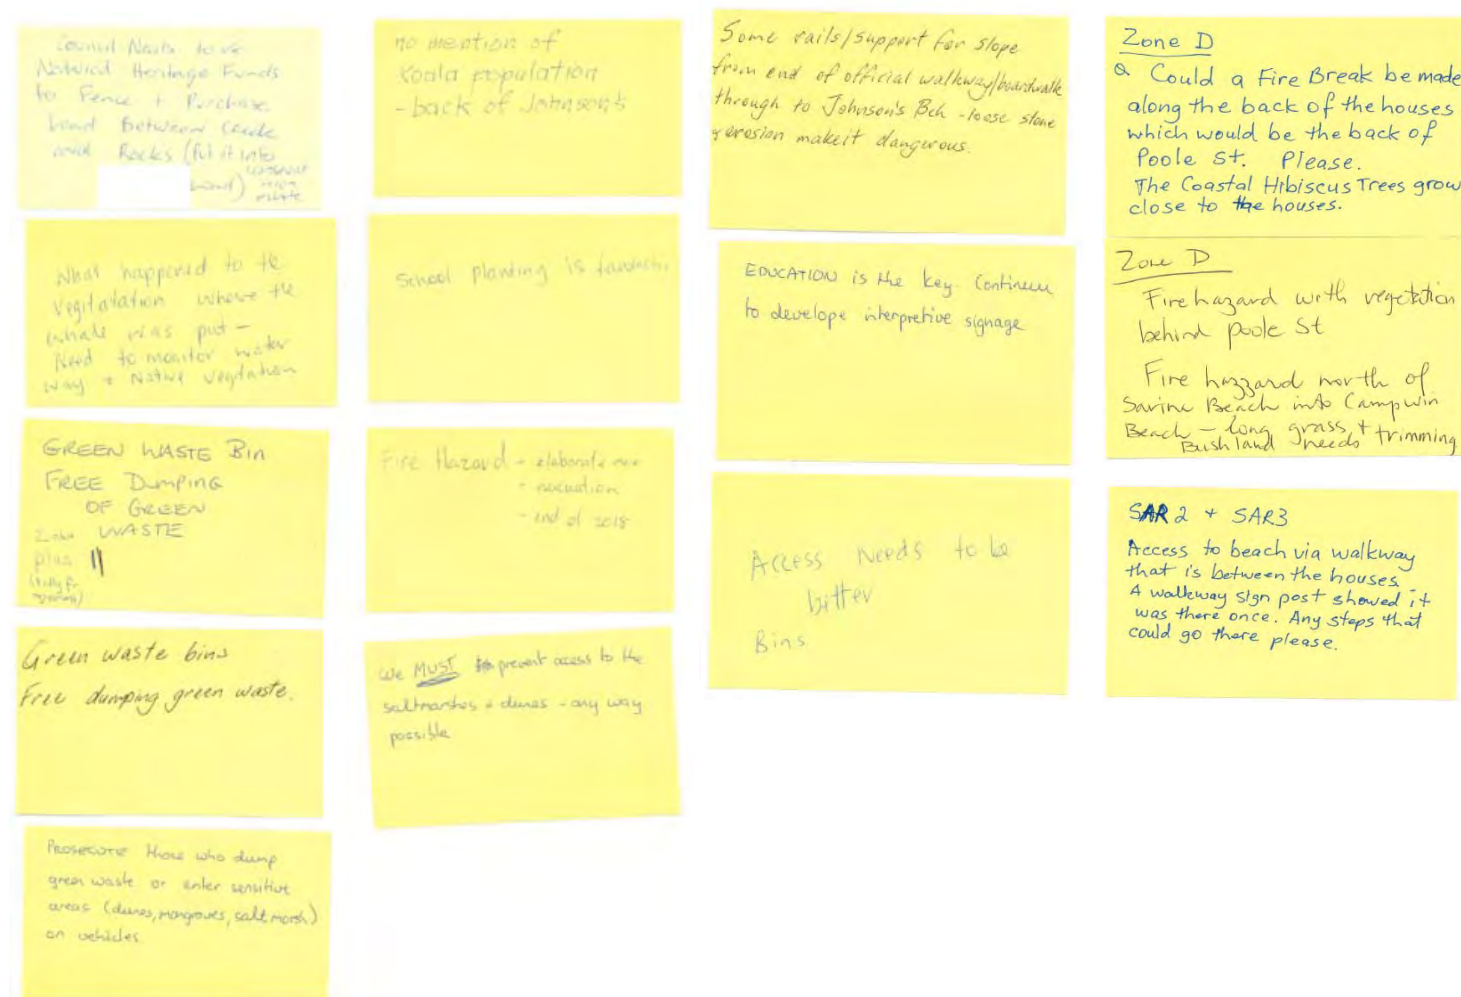 Council Needs to use
Natural Heritage Funds
to Fence + Purchase
Land Between Creek
and Rocks (Put it into
Land)
What happened to the
vegitatation where the
whale was put –
Need to monitor water
way + Native vegitation
GREEN WASTE Bin
FREE Dumping
OF GREEN
WASTE
plus ||
Green waste bins
Free dumping green waste.
PROSECUTE those who dump
green waste or enter sensitive
areas (dunes, mangroves, salt marsh)
on vehicles
no mention of
Koala population
- back of Johnson's
School planting is fantastic
Fire Hazard - elaborate
- evacuation
- end of 2018
We MUST prevent access to the
saltmarshes + dunes - any way
possible
Some rails/support for slope
from end of official walkway/boardwalk
through to Johnson's Bch - loose stone
+ erosion make it dangerous.
EDUCATION is the key. Continue
to develope interpretive signage
Access Needs to be
better
Bins
Zone D
Q Could a Fire Break be made
along the back of the houses
which would be the back of
Poole St. Please.
The Coastal Hibiscus Trees grow
close to the houses.
Zone D
Fire hazard with vegetation
behind poole St
Fire hazzard north of
Sarina Beach into Campwin
Beach – long grass +
Bushland needs trimming
SAR 2 + SAR3
Access to beach via walkway
that is between the houses.
A walkway sign post showed it
was there once. Any steps that
could go there please.